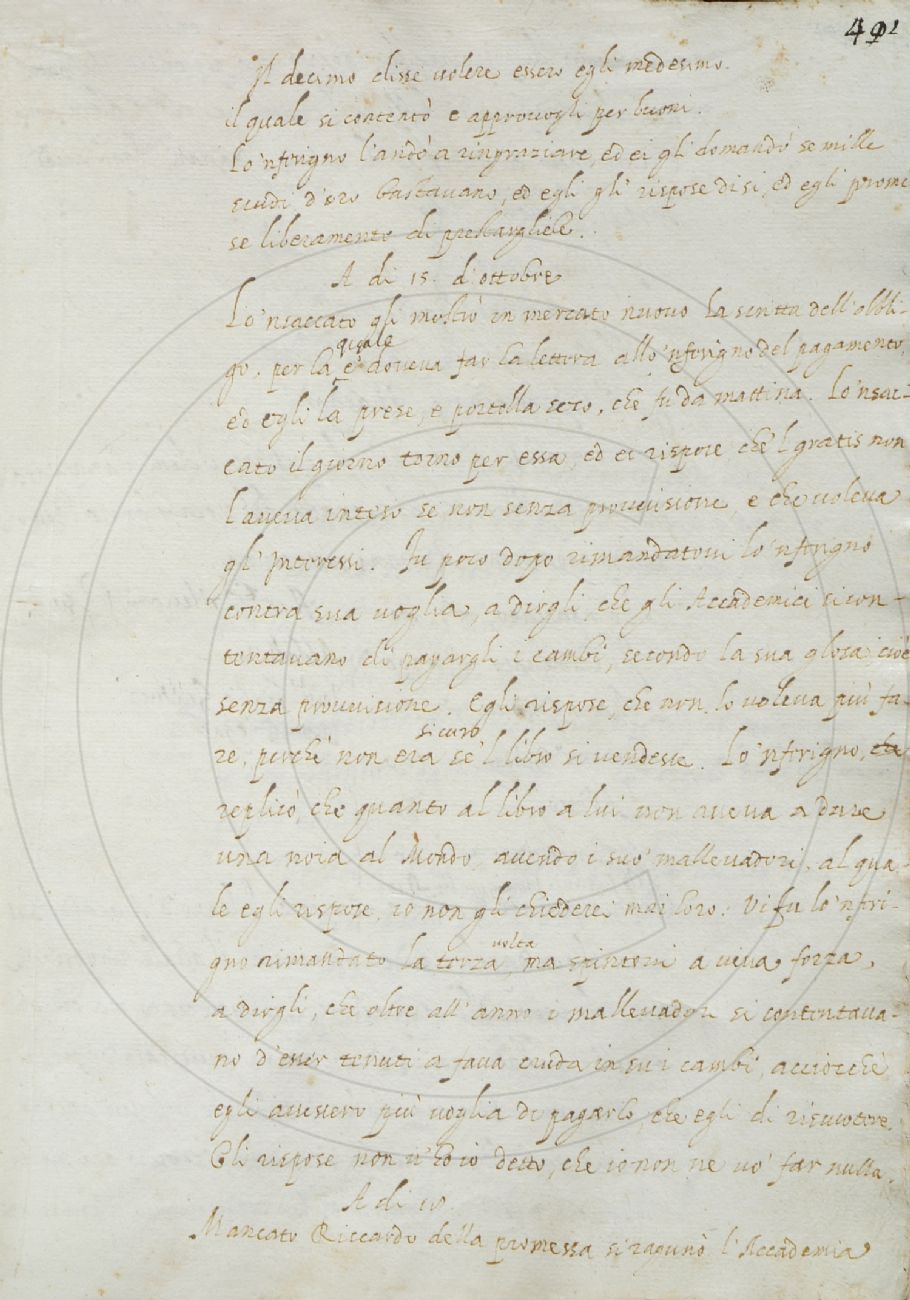 49
Il decimo disse volere essero egli medesimo.
il quale si contentò e approvogli per buoni.
Lo 'nferigno l'andò a ringraziare, ed ei gli domandò se mille
scudi d'oro bastavano, ed egli gli rispose di sì, ed egli prome
se liberamente di prestargliele.
A di 15. d'ottobre
Lo 'nsaccato gli mostrò in mercato nuovo la scritta dell'obbli-
go, per la quale e' doveva far la lettera allo 'nferigno del pagamento,
ed egli la prese, e portolla seco, che fu da mattina. Lo 'nsac-
cato il giorno tornò per essa, ed ei rispose che 'l gratis non
l'aveva inteso se non senza provvisione, e che voleva
gl' interessi. Fu poco dopo rimandatovi lo 'nferigno
contra sua voglia, a dirgli, che gli Accademici si con-
tentavano di pagargli i cambi, secondo la sua glosa cioè
senza provvisione. Egli rispose, che non lo voleva più fa-
re, perchè non era sicuro se 'l libro si vendesse. Lo 'nferigno, che
replicò, che quanto al libro a lui non aveva a dare
una noia al Mondo, avendo i suo' mallevadori. al qua
le egli rispose, io non gli chiederei mai loro: Vi fu lo 'nferi-
gno rimandato la terza volta, ma spintovi a viva forza,
a dirgli, che oltre all' anno i mallevadori si contentava-
no d'esser tenuti a fava cruda in su i cambi, acciocchè
egli avessero più voglia di pagarlo, che egli di riscuotere.
Gli rispose non v' ho io detto, che io non ne vo' far nulla.
A di 18.
Mancato Riccardo della promessa si ragunò l'Accademia